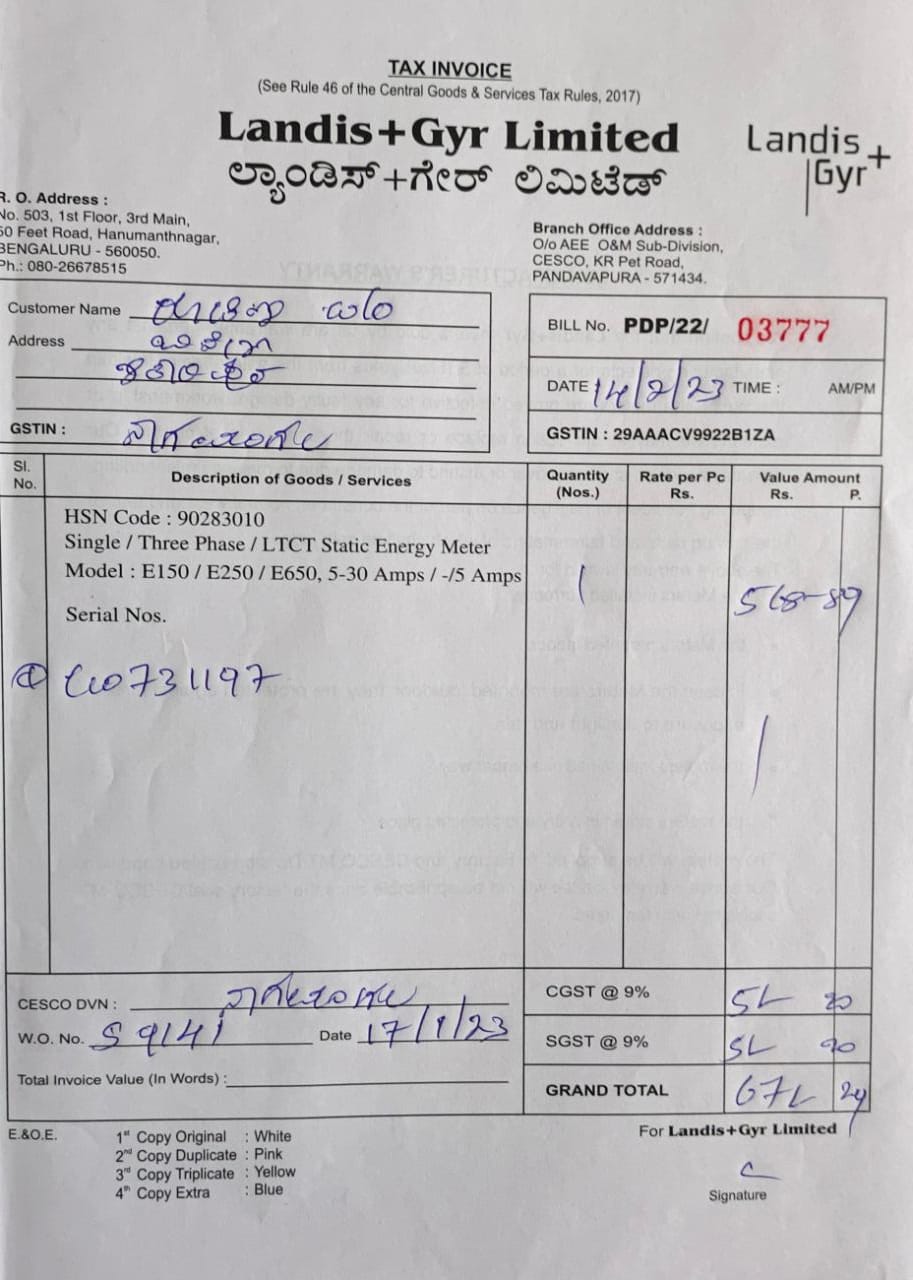 TAX INVOICE
(See Rule 46 of the Central Goods & Services Tax Rules, 2017)
Landis+Gyr Limited
ಲ್ಯಾಂಡಿಸ್+ಗೇರ್ ಲಿಮಿಟೆಡ್
Landis
Gyr+
R. O. Address :
No. 503, 1st Floor, 3rd Main,
60 Feet Road, Hanumanthnagar,
BENGALURU - 560050.
Ph.: 080-26678515
Branch Office Address :
O/o AEE O&M Sub-Division,
CESCO, KR Pet Road,
PANDAVAPURA - 571434.
Customer Name
Address
GSTIN :
BILL No. PDP/22/ 03777
DATE 14/2/23 TIME : AM/PM
GSTIN : 29AAACV9922B1ZA
Sl. No. Description of Goods / Services Quantity (Nos.) Rate per Pc Rs. Value Amount Rs. P.
HSN Code : 90283010
Single / Three Phase / LTCT Static Energy Meter
Model : E150 / E250 / E650, 5-30 Amps / -/5 Amps 1 568-89
Serial Nos.
CESCO DVN :
W.O. No. S 9141 Date 17/1/23
Total Invoice Value (In Words) :
CGST @ 9%
SGST @ 9%
GRAND TOTAL
E.&O.E.
1st Copy Original : White
2nd Copy Duplicate : Pink
3rd Copy Triplicate : Yellow
4th Copy Extra : Blue
For Landis+Gyr Limited
Signature